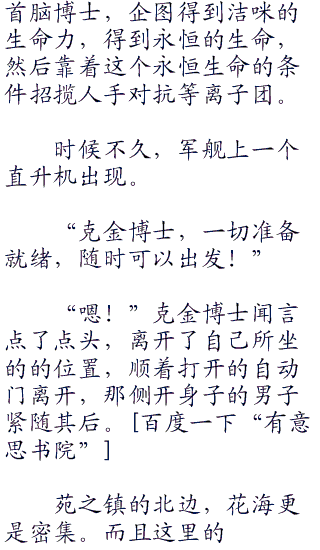 首脑博士，企图得到洁咪的
生命力，得到永恒的生命，
然后靠着这个永恒生命的条
件招揽人手对抗等离子团。
时候不久，军舰上一个
直升机出现。
“克金博士，一切准备
就绪，随时可以出发！”
“嗯！”克金博士闻言
点了点头，离开了自己所坐
的的位置，顺着打开的自动
门离开，那侧开身子的男子
紧随其后。[百度一下“有意
思书院”]
苑之镇的北边，花海更
是密集。而且这里的